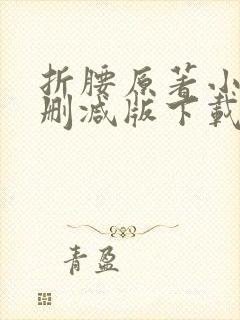 折腰原著小
删减版下载
青盈